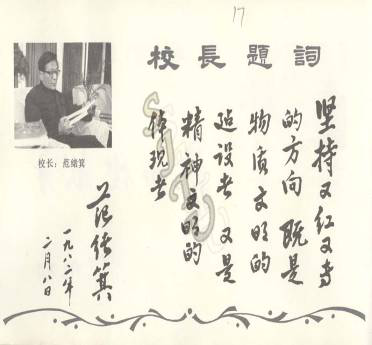 17
校長題詞
坚持又红又专
的方向 既是
物质文明的
建设者 又是
精神文明的
体现者
范绪箕
一九八二年
二月八日
校长：范绪箕